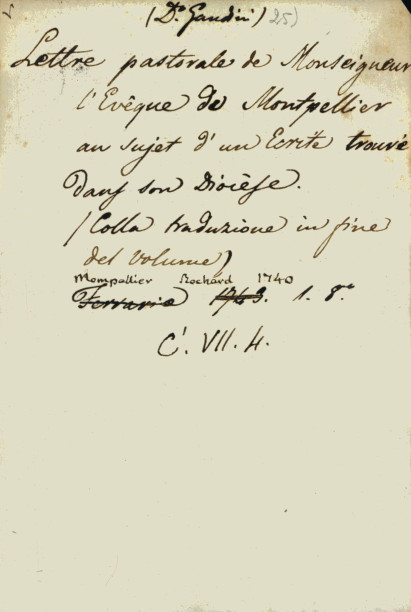 (Dr. Gaudini) 25)
Lettre pastorale de Monseigneur
l'Evêque de Montpellier
au sujet d'un Ecrite trouvé
dans son Diocièse.
(Colla traduzione in fine
del volume)
Mompellier Rochard 1740
Ferrarie 1743. 1. 8.°
C'. VII. 4.